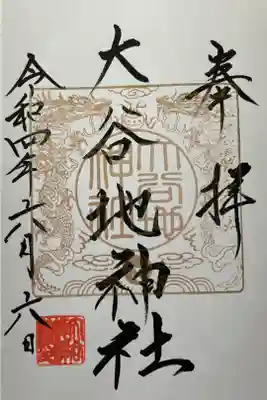 奉拝
大谷地神社
令和四年六月十六日
大谷地神社